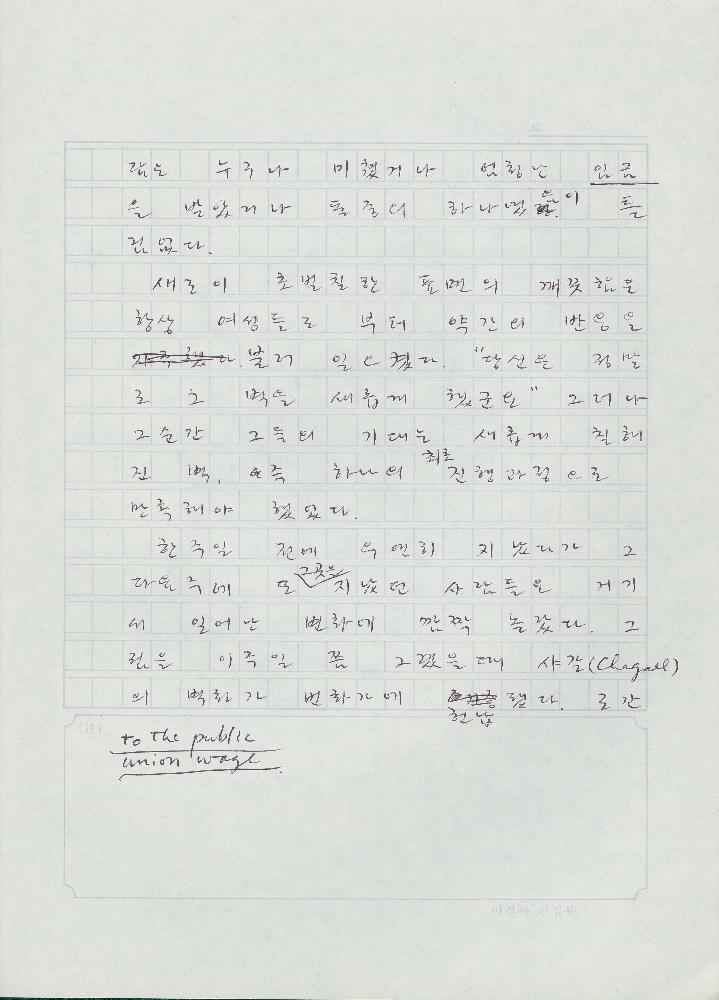 람은 누구나 미쳤거나 엄청난 임금
을 받았거나 둘중의 하나였음이 틀
림없다.
새로이 초벌칠한 표면의 깨끗함은
항상 여성들로 부터 약간의 반응을
불러 일으켰다. "당신은 정말
로 그 벽을 새롭게 했군요" 그러나
그순간 그들의 기대는 새롭게 칠해
진 벽, 즉 하나의 최초 진행과정으로
만족해야 했었다.
한주일 전에 우연히 지났다가 그
다음주에 또 그곳을 지났던 사람들은 거기
서 일어난 변화에 깜짝 놀랐다. 그
림을 이주일 쯤 그렸을때 샤갈(Chagall)
의 벽화가 번화가에 헌납됐다. 로간
(社)
to the public
union wage